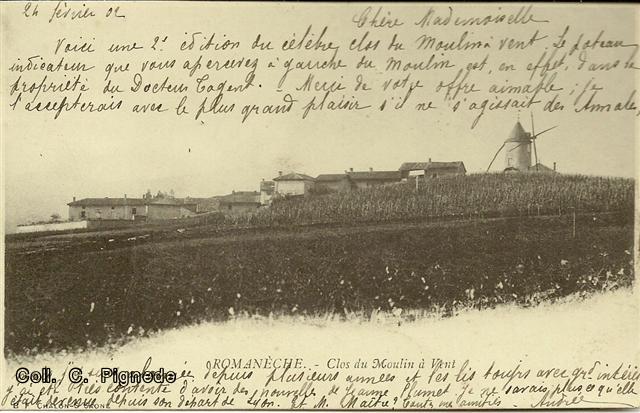 24 février 02
Chère Mademoiselle
Voici une 2e édition du célèbre clos du Moulin à vent. Le poteau
indicateur que vous apercevez à gauche du Moulin est, en effet, dans la
propriété du Docteur Tagent. - Merci de votre offre aimable; je
l'accepterais avec le plus grand plaisir s'il ne s'agissait des Annales,
ROMANÈCHE. - Clos du Moulin à Vent
depuis plusieurs années et les lis toujours avec grd intérêt
contente d'avoir des nouvelles de Jeanne Lamet. Je ne savais plus ce qu'elle
était devenue depuis son départ de Lyon. et M. Maître?
Coll. C. Pignede
CHALON-S-SAONE